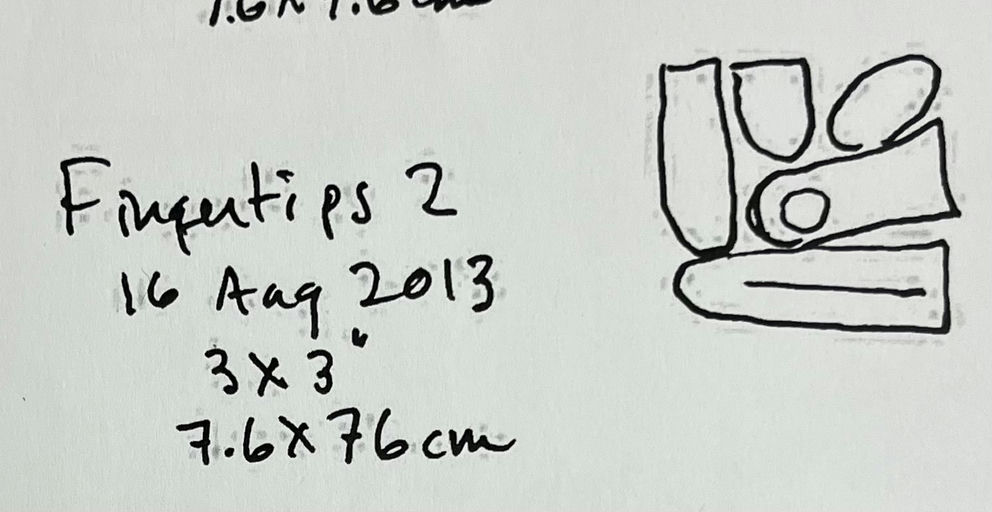 7.6 x 7.6 cm
Fingertips 2
16 Aug 2013
3 x 3"
7.6 x 76 cm